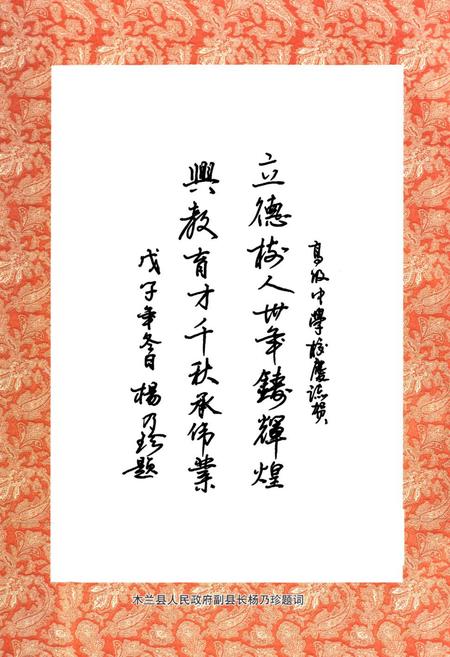 高级中学校慶誌賀
立德树人卅年鑄輝煌
興教育才千秋承伟業
戊子年冬日 楊乃珍題
木兰县人民政府副县长杨乃珍题词